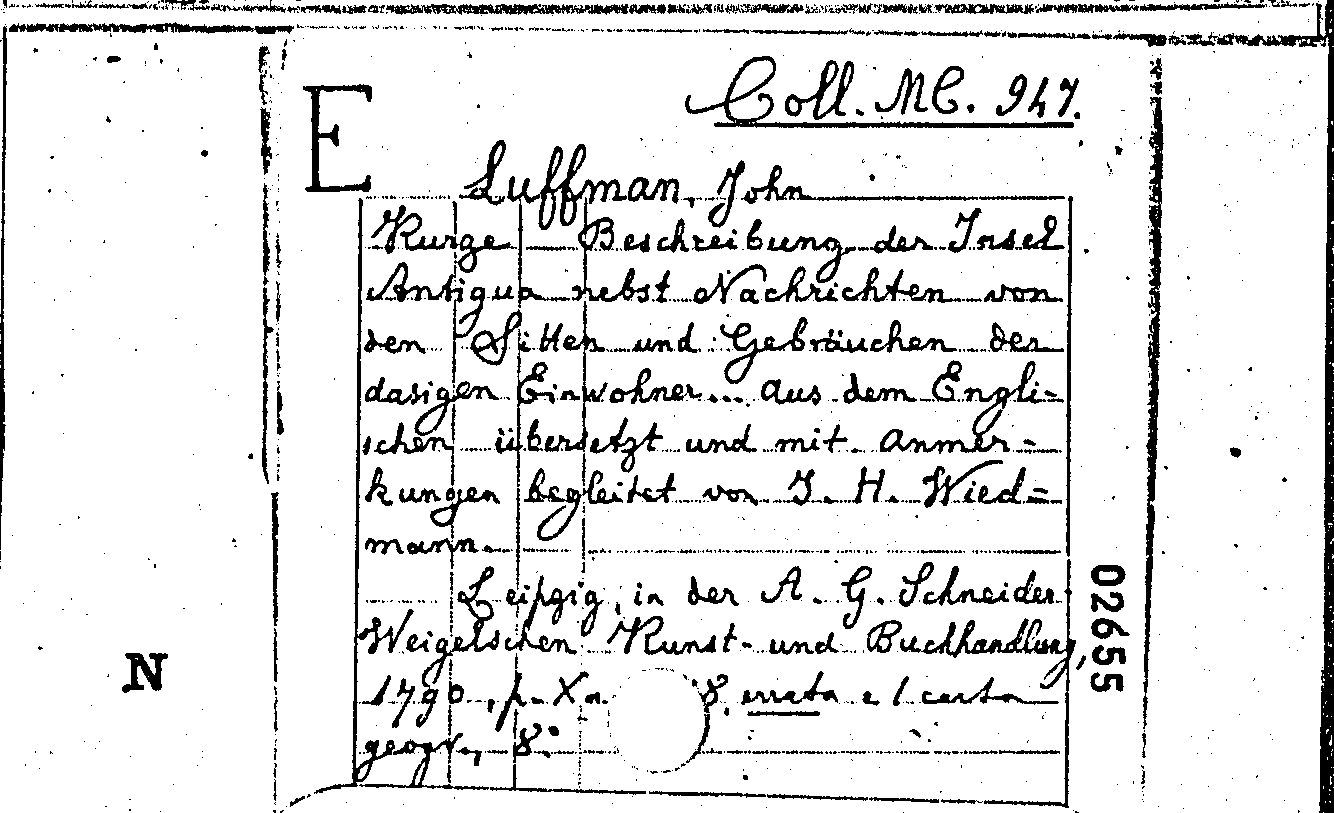 E
Coll. MC. 947.
Luffman, John
Kurze Beschreibung der Insel
Antigua nebst Nachrichten von
den Sitten und Gebräuchen der
dasigen Einwohner... aus dem Engli=
schen übersetzt und mit anmer=
kungen begleitet von J. H. Wied=
mann.
Leipzig, in der A. G. Schneider
Weigelschen Kunst- und Buchhandlung,
1790, p. 8. errata e 1 carta
geogr., 8°
02655
N